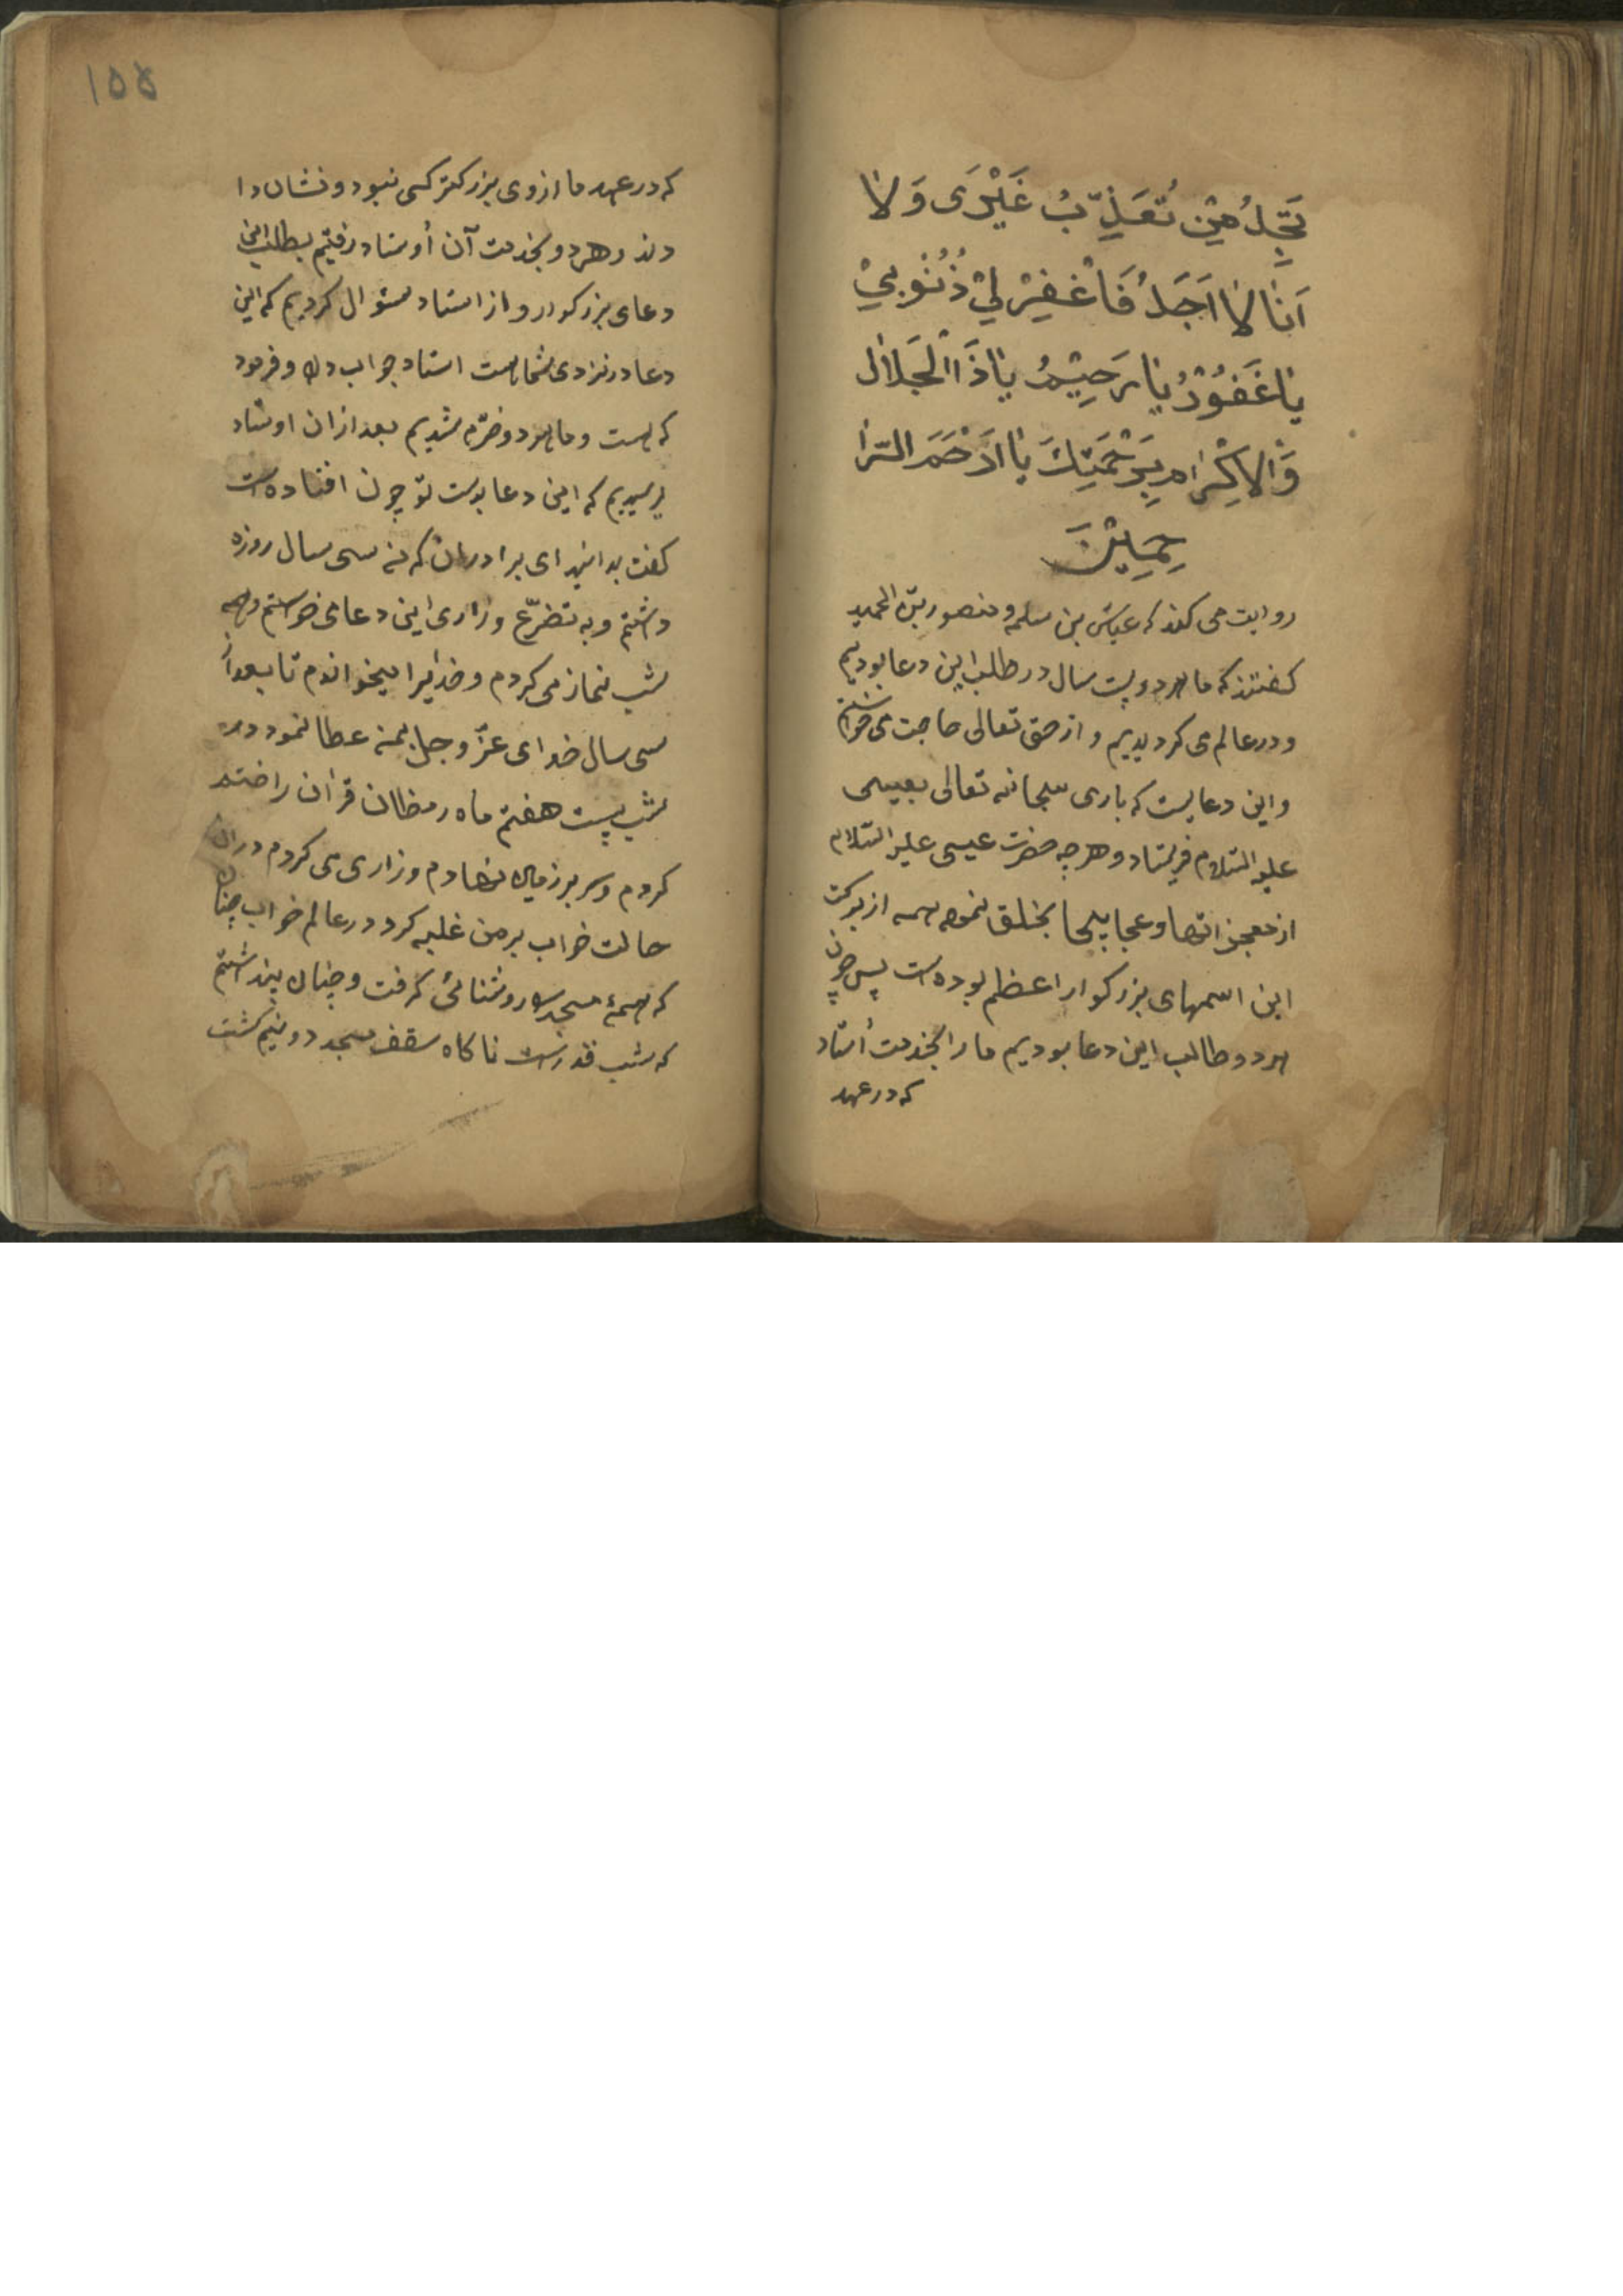 تَجِدُ مَنْ تُعَذِّبُ غَيْرى وَلا
اَنَا لا اَجَدُ فَاغْفِرْ لِيْ ذُنُوْبِيْ
يا غَفُوْرُ يا رَحِيْمُ يا ذَاالْجَلالِ
وَالاِكْرام بِرَحْمَتِكَ يا اَرْحَمَ الرّا
حِمِيْنَ
روایت می کند که عباس بن سلمه و منصور بن الحمید
کفتند که ما هر دو بیست سال در طلب این دعا بودیم
و در عالم می کردیدیم و از حق تعالی حاجت می خواستیم
و این دعایست که باری سبحانه تعالی بعیسی
علیه السّلام فریستاد و هر چه حضرت عیسی علیه السّلام
از معجزاتها و عجایبها بخلق نموده همه از برکت
این اسمهای بزرکوار اعظم بوده است پس چون
هر دو طالب این دعا بودیم ما را بخدمت اُستاد
که در عهد
۱۵۵
که در عهد ما از وی بزرکتر کسی نبود و نشان دا
دند و هر دو بخدمت آن اُوستاد رفتیم بطلب این
دعای بزرکوار و از استاد سئوال کردیم که این
دعا در نزدی شما هست استاد جواب داد و فرمود
که هست و ما هر دو خرّم شدیم بعد ازان اوستاد
پرسیدیم که این دعا بدست تو چون افتاده است
کفت بدانید ای برادران که من سی سال روزه
داشتم و به تضرّع و زاری این دعا می خواستم و همه
شب نماز می کردم و خدایرا میخواندم تا بعد از
سی سال خدای عزّ و جل بمن عطا نمود در
شب بیست هفتم ماه رمظان قرآن را ختم
کردم و سر بر زمین نهادم و زاری می کردم در ان
حالت خواب بر من غلبه کرد در عالم خواب چنان
که همهٔ مسجد را روشنائی کرفت و چنان پنداشتم
که شب قدر است ناکاه سقف مسجد دو نیم کشت